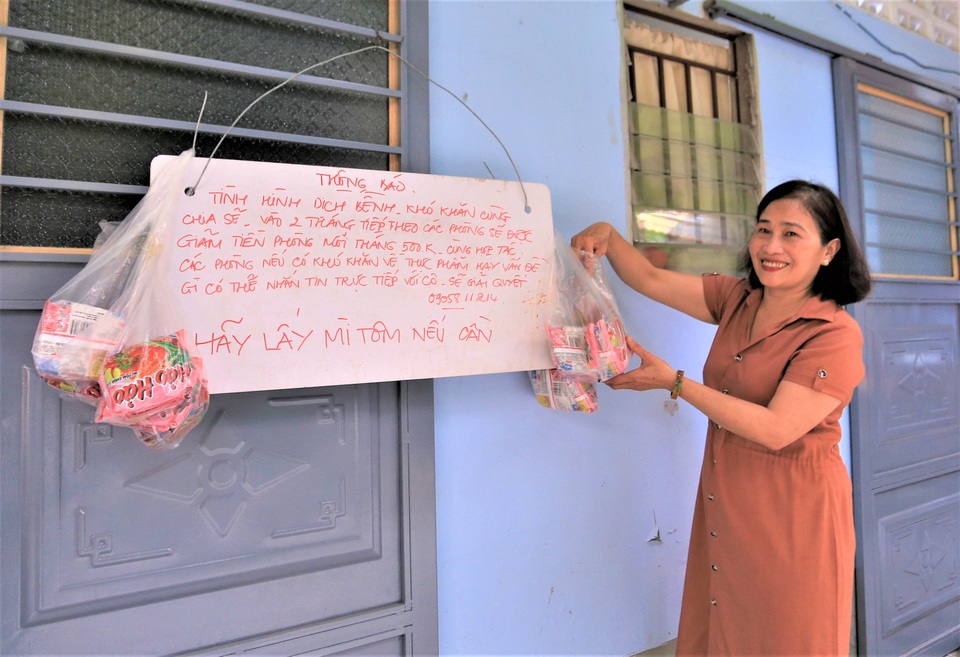 THÔNG BÁO.
TÌNH HÌNH DỊCH BỆNH. KHÓ KHĂN CÙNG
CHIA SẺ. VÀO 2 THÁNG TIẾP THEO CÁC PHÒNG SẼ ĐƯỢC
GIẢM TIỀN PHÒNG MỖI THÁNG 500K. CÙNG HỢP TÁC.
CÁC PHÒNG NẾU CÓ KHÓ KHĂN VỀ THỰC PHẨM HAY VẤN ĐỀ
GÌ CÓ THỂ NHẮN TIN TRỰC TIẾP VỚI CÔ. SẼ GIẢI QUYẾT
HÃY LẤY MÌ TÔM NẾU CẦN
Hảo Hảo